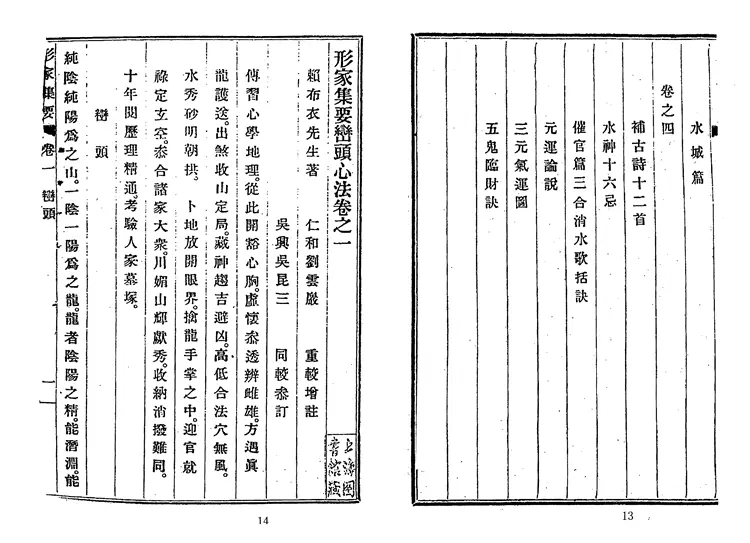 水城篇
卷之四
補古詩十二首
水神十六忌
催官篇三合消水歌括訣
元運論說
三元氣運圖
五鬼臨財訣
13
形家集要巒頭心法卷之一
賴布衣先生著 仁和劉雲巖 重較增註
吳興吳昆三 同較叅訂
傳習心學地理。從此開豁心胸。虛懷叅透辨雌雄。方遇眞
龍護送。出煞收山定局。藏神趨吉避凶。高低合法穴無風。
水秀砂明朝拱。 卜地放開眼界。擒龍手掌之中。迎官就
祿定玄空。叅合諸家大衆。川媚山輝獻秀。收納消撥難同。
十年閱歷理精通。考驗人家墓塚。
巒頭
純陰純陽爲之山。一陰一陽爲之龍。龍者陰陽之精。能潛淵。能
形家集要 卷一 巒頭 一
上海圖書館藏
14